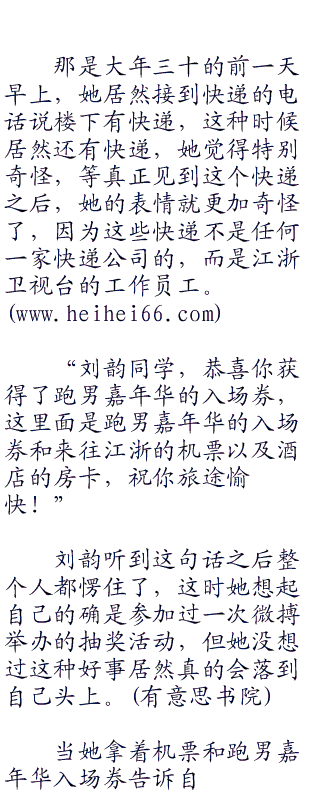 那是大年三十的前一天
早上，她居然接到快递的电
话说楼下有快递，这种时候
居然还有快递，她觉得特别
奇怪，等真正见到这个快递
之后，她的表情就更加奇怪
了，因为这些快递不是任何
一家快递公司的，而是江浙
卫视台的工作员工。
(www.heihei66.com)
“刘韵同学，恭喜你获
得了跑男嘉年华的入场券，
这里面是跑男嘉年华的入场
券和来往江浙的机票以及酒
店的房卡，祝你旅途愉
快！”
刘韵听到这句话之后整
个人都愣住了，这时她想起
自己的确是参加过一次微搏
举办的抽奖活动，但她没想
过这种好事居然真的会落到
自己头上。(有意思书院)
当她拿着机票和跑男嘉
年华入场券告诉自